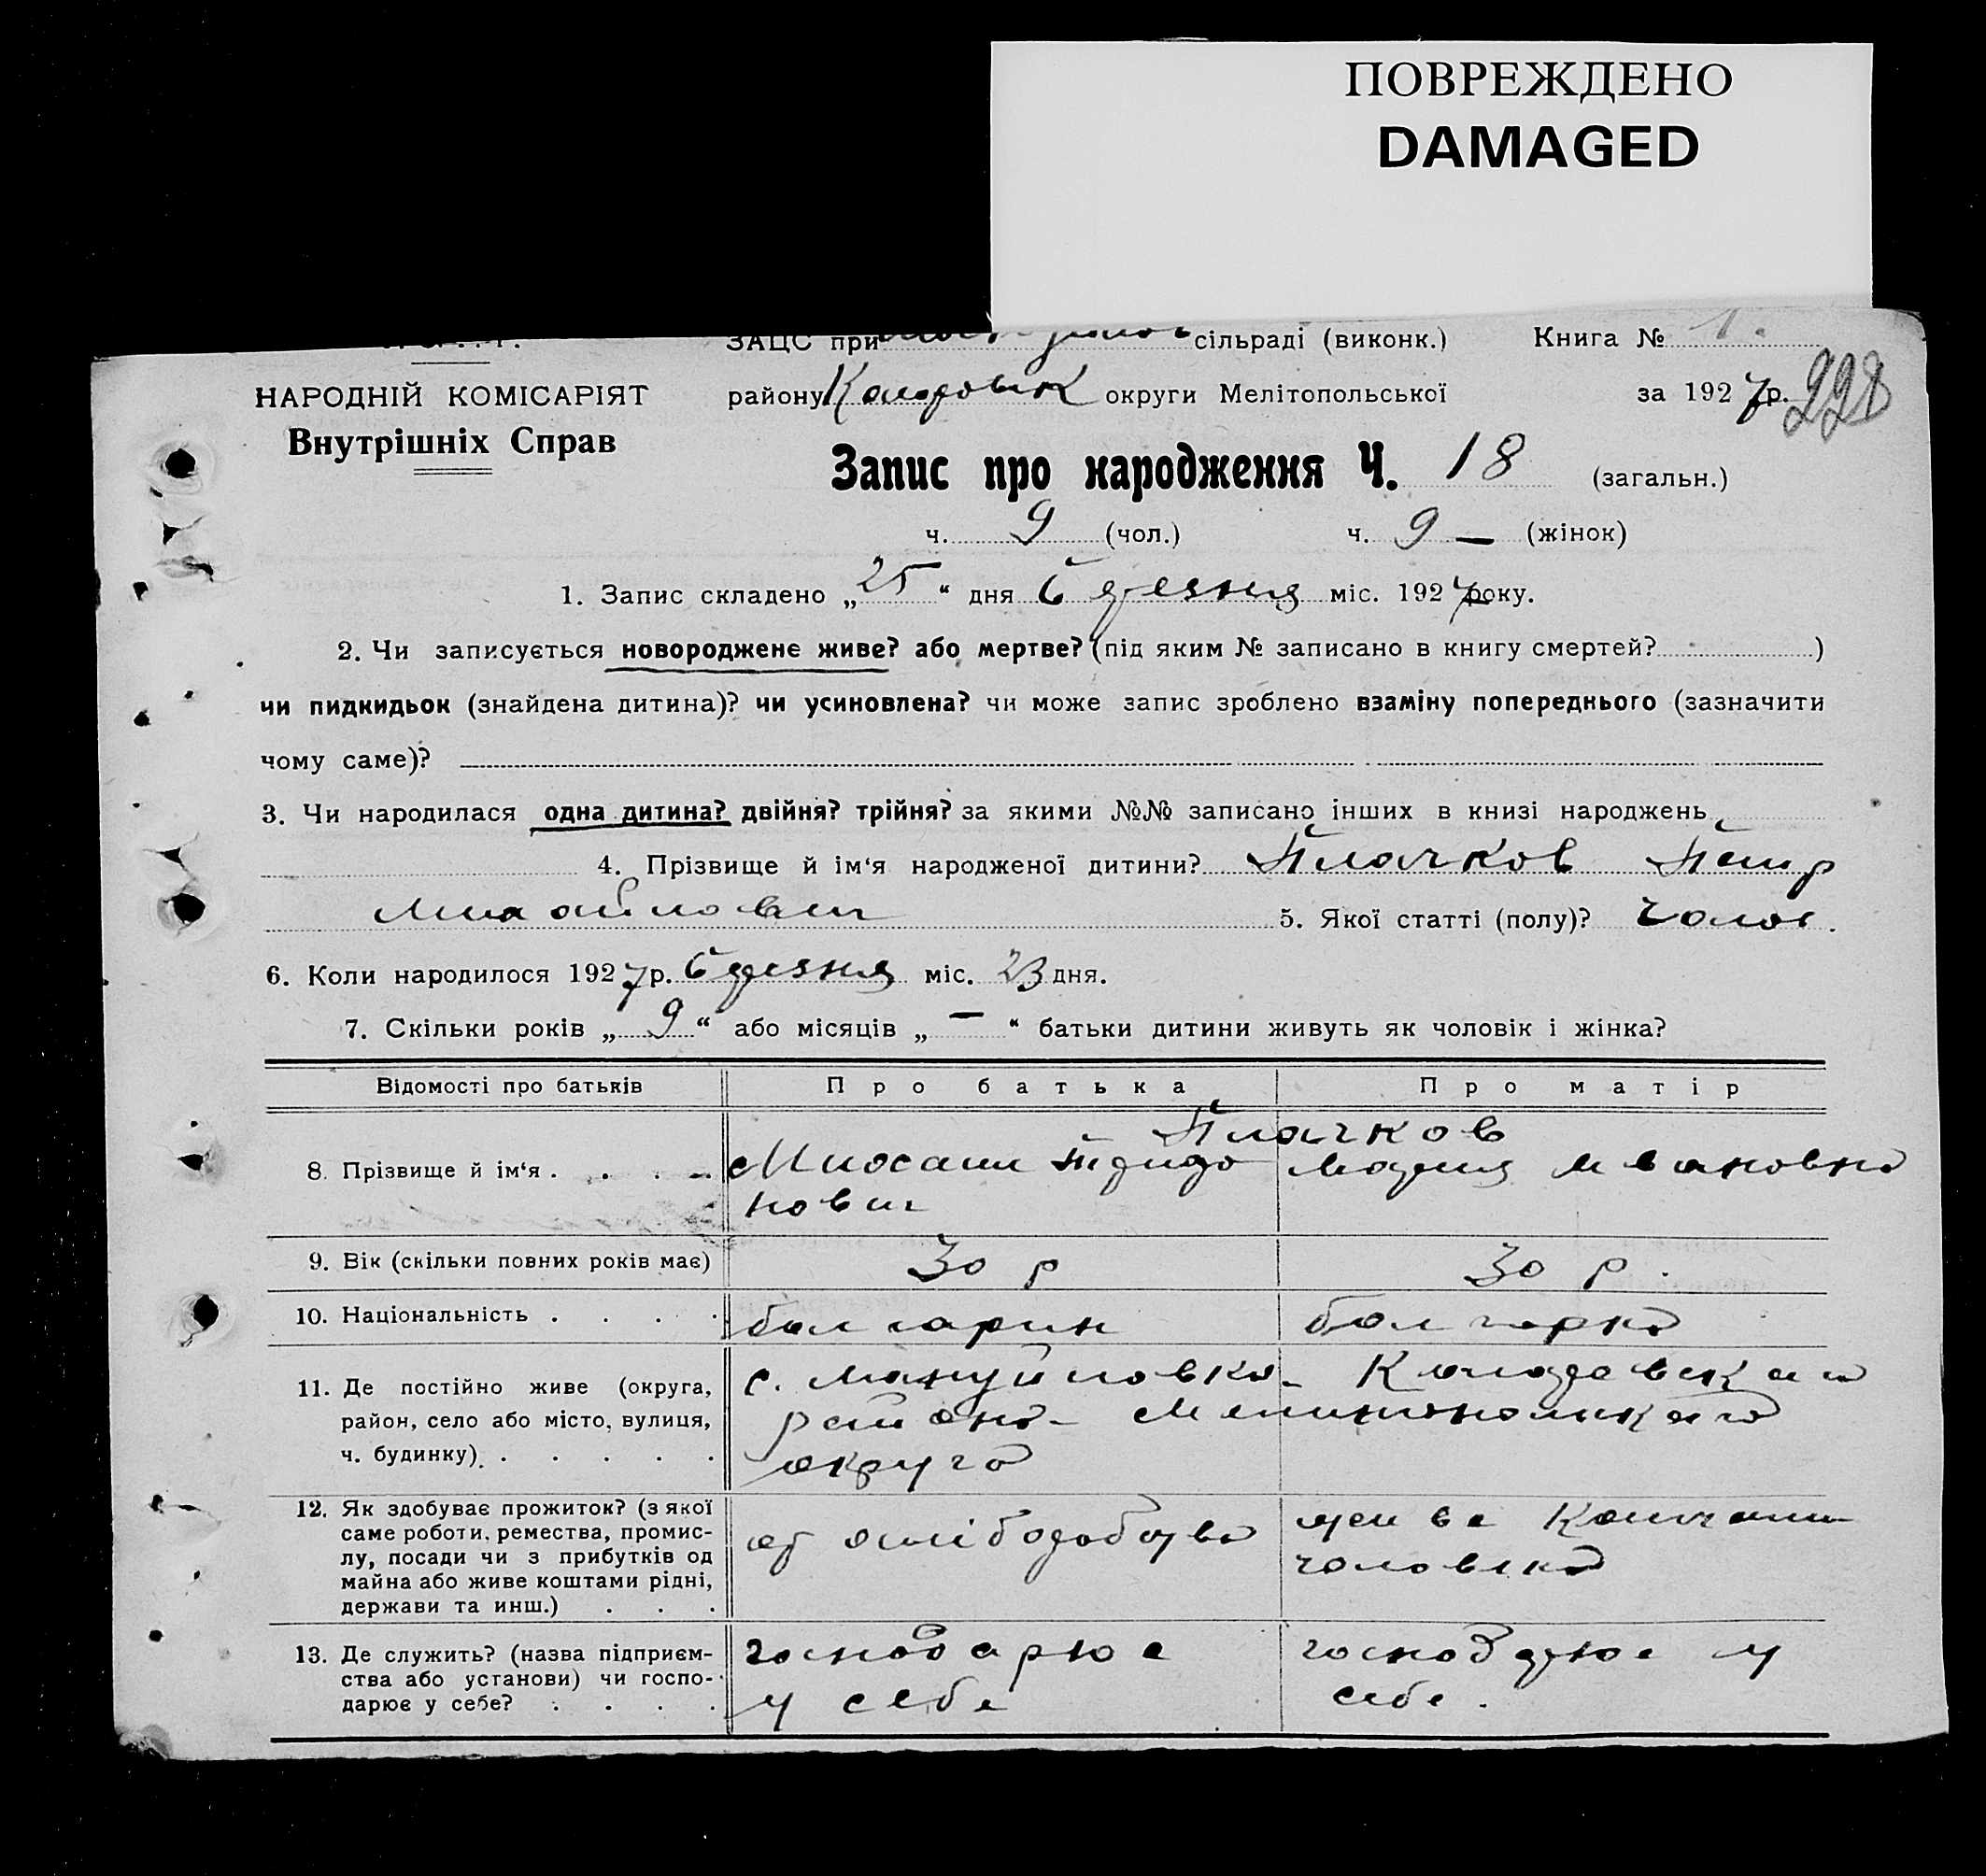 ПОВРЕЖДЕНО
DAMAGED
ЗАЦС при сільраді (виконк.) Книга № 1.
НАРОДНІЙ КОМІСАРІЯТ району округи Мелітопольської за 1927р. 228
Внутрішніх Справ
Запис про народження Ч. 18 (загальн.)
ч. 9 (чол.) ч. 9 — (жінок)
1. Запис складено „25“ дня березня міс. 1927 року.
2. Чи записується новороджене живе? або мертве? (під яким № записано в книгу смертей? )
чи пидкидьок (знайдена дитина)? чи усиновлена? чи може запис зроблено взаміну попереднього (зазначити
чому саме)?
3. Чи народилася одна дитина? двійня? трійня? за якими №№ записано інших в книзі народжень
4. Прізвище й ім‘я народженої дитини? Плачков Петр
Михайлович 5. Якої статті (полу)? Чолов.
6. Коли народилося 1927р. березня міс. 23 дня.
7. Скільки років „9“ або місяців „—“ батьки дитини живуть як чоловік і жінка?
Відомості про батьків Про батька Про матір
Плачков
8. Прізвище й ім‘я . . . . Мария Ивановна
нович
9. Вік (скільки повних років має) 30 р 30 р.
10. Національність . . . . болгарин болгарка
11. Де постійно живе (округа, с. Мануйловка
район, село або місто, вулиця, району Мелитопольского
ч. будинку) . . . . . округа
12. Як здобуває прожиток? (з якої
саме роботи, ремества, промис-
лу, посади чи з прибутків од
майна або живе коштами рідні,
держави та инш.) . . .
от хлібодобства живе коштами
чоловіка
13. Де служить? (назва підприєм-
ства або установи) чи госпо-
дарює у себе? . . . .
господарює господарює у
у себе себе.